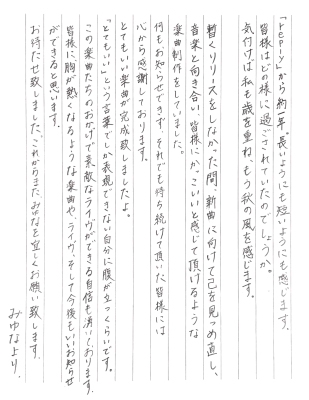 「reply」から約一年、長いようにも短いようにも感じます。
皆様はどの様に過ごされていたのでしょうか。
気付けば私も歳を重ね、もう秋の風を感じます。
暫くリリースをしなかった間、新曲に向けて己を見つめ直し、
音楽と向き合い、皆様にかっこいいと感じて頂けるような
楽曲制作をしていました。
何もお知らせできず、それでも待ち続けて頂いた皆様には
心から感謝しております。
とてもいい楽曲が完成致しましたよ。
「とてもいい」という言葉でしか表現できない自分に腹が立つくらいです。
この楽曲たちのおかげで素敵なライヴができる自信も湧いております。
皆様に胸が熱くなるような楽曲や、ライヴ、そして今後もいいお知らせ
ができると思います。
お待たせ致しました。これからまたみゆなを宜しくお願い致します。
みゆなより.